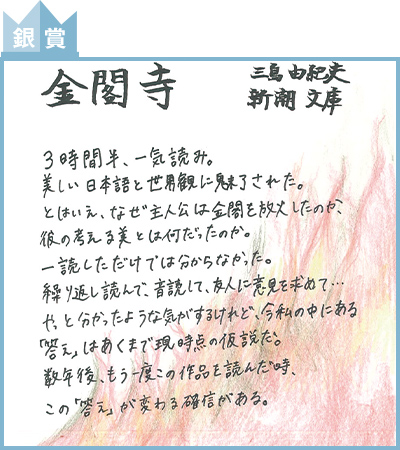 銀賞
金閣寺
三島由紀夫
新潮文庫
3時間半、一気読み。
美しい日本語と世界観に魅了された。
とはいえ、なぜ主人公は金閣を放火したのか、
彼の考える美とは何だったのか。
一読しただけでは分からなかった。
繰り返し読んで、音読して、友人に意見を求めて…
やっと分かったような気がするけれど、今私の中にある
「答え」はあくまで現時点の仮説だ。
数年後、もう一度この作品を読んだ時、
この「答え」が変わる確信がある。